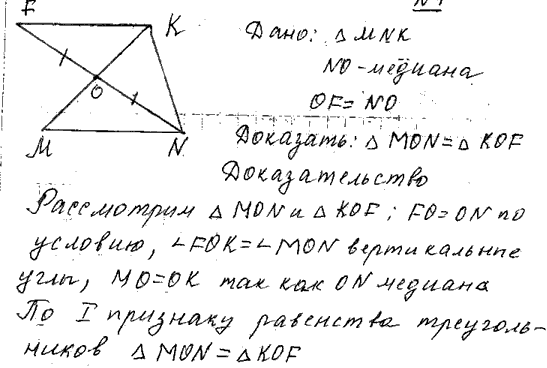 F
K
Дано: △ MNK
NO - медиана
OF = NO
O
M
N
Доказать: △ MON = △ KOF
Доказательство
Рассмотрим △ MON и △ KOF; FO=ON по
условию, ∠FOK=∠MON вертикальные
углы, MO=OK так как ON медиана
По I признаку равенства треуголь-
ников △ MON = △ KOF